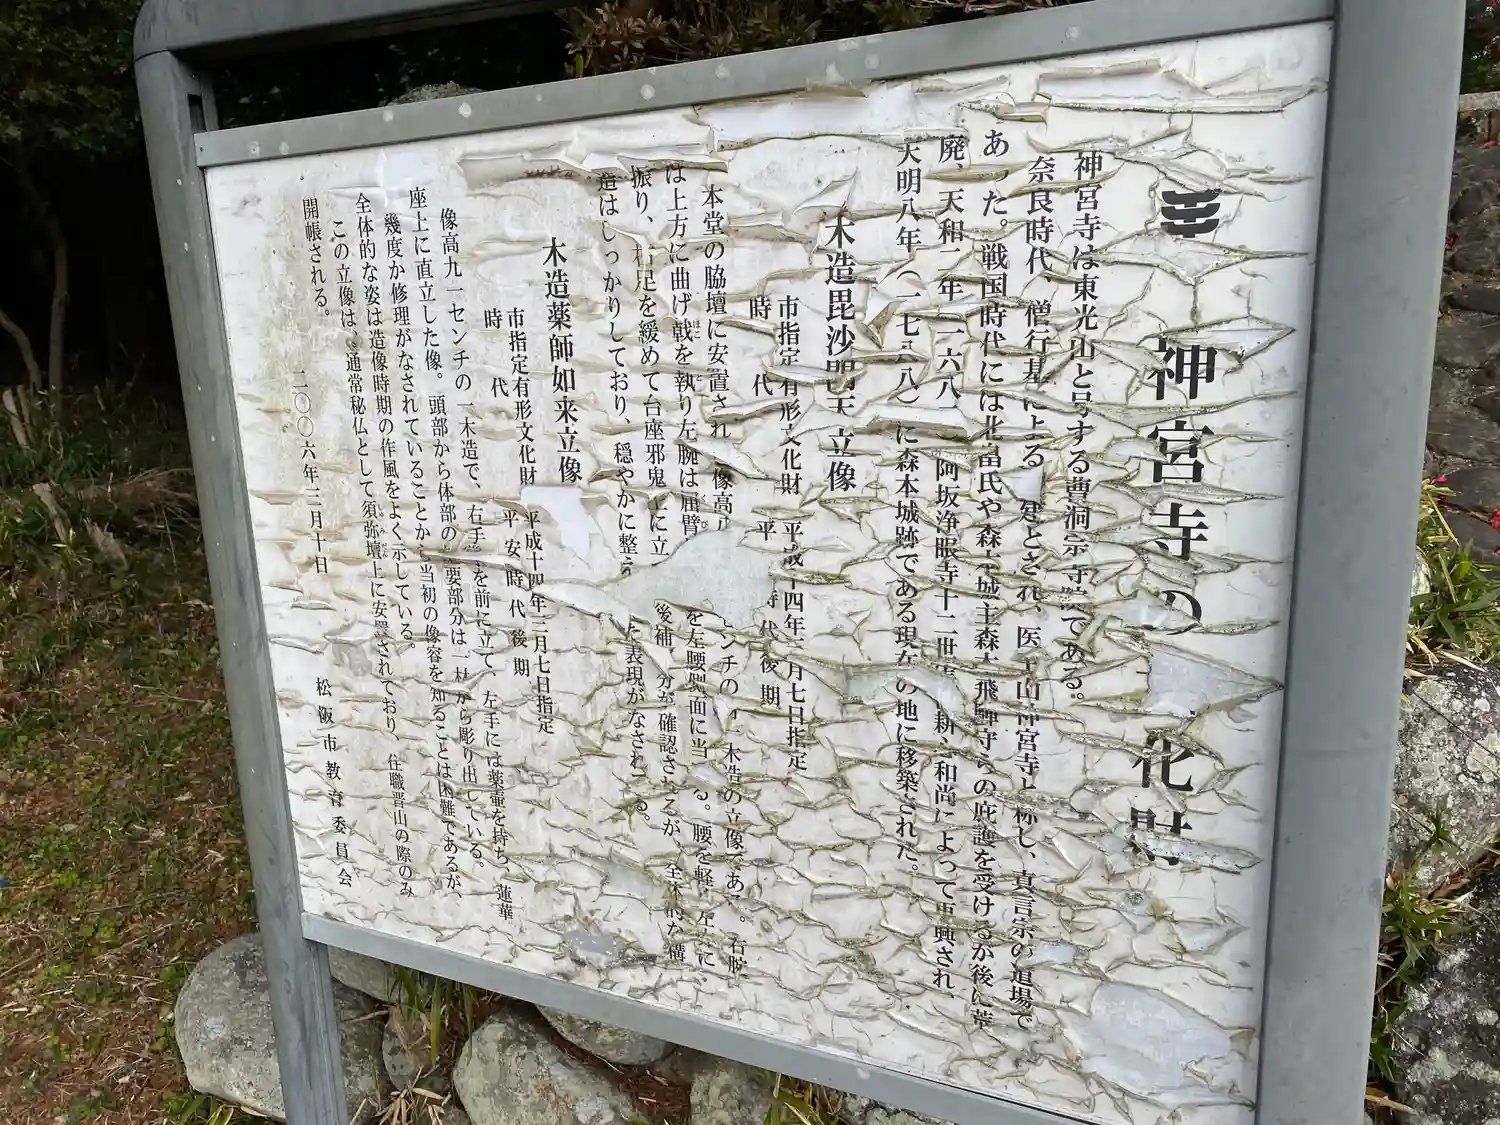 神宮寺の 化財
神宮寺は東光山と号する曹洞宗寺院である。
奈良時代、僧行基による 建とされ、医王山神宮寺と称し、真言宗の道場で
あった。戦国時代には北畠氏や森本城主森本飛騨守らの庇護を受けるが後に荒
廃、天和二年 一六八 阿坂浄眼寺十二世 耕 和尚によって再興され、
天明八年（一七八八）に森本城跡である現在の地に移築された。
木造毘沙門天立像
市指定有形文化財 平成十四年 月七日指定
時 代 平 時代後期
本堂の脇壇に安置され 像高 センチの 木造の立像である。右腕
は上方に曲げ戟を執り左腕は屈臂 を左腰側面に当 る。腰を軽 左 に
振り、右足を緩めて台座邪鬼上に立 後補 分が確認されるが、全体的な構
造はしっかりしており、穏やかに整え た表現がなされ る。
木造薬師如来立像
市指定有形文化財 平成十四年三月七日指定
時 代 平安時代後期
像高九一センチの一木造で、右手 を前に立て、左手には薬壷を持ち、蓮華
座上に直立した像。頭部から体部の 要部分は一材から彫り出している。
幾度か修理がなされていることから当初の像容を知ることは困難であるが、
全体的な姿は造像時期の作風をよく示している。
この立像は、通常秘仏として須弥壇上に安置されており、住職晋山の際のみ
開帳される。
二〇〇六年三月十日 松阪市教育委員会